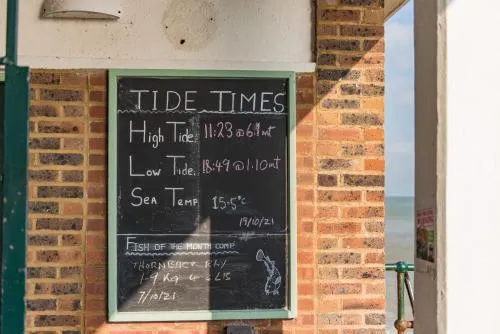 TIDE TIMES
High Tide 11:23 @ 6.9mt
Low Tide 18:49 @ 1.10mt
Sea Temp 15.5°c
19/10/21
FISH OF THE MONTH COMP
THORNBACK RAY
1-9 Kg 4 LB
7/10/21